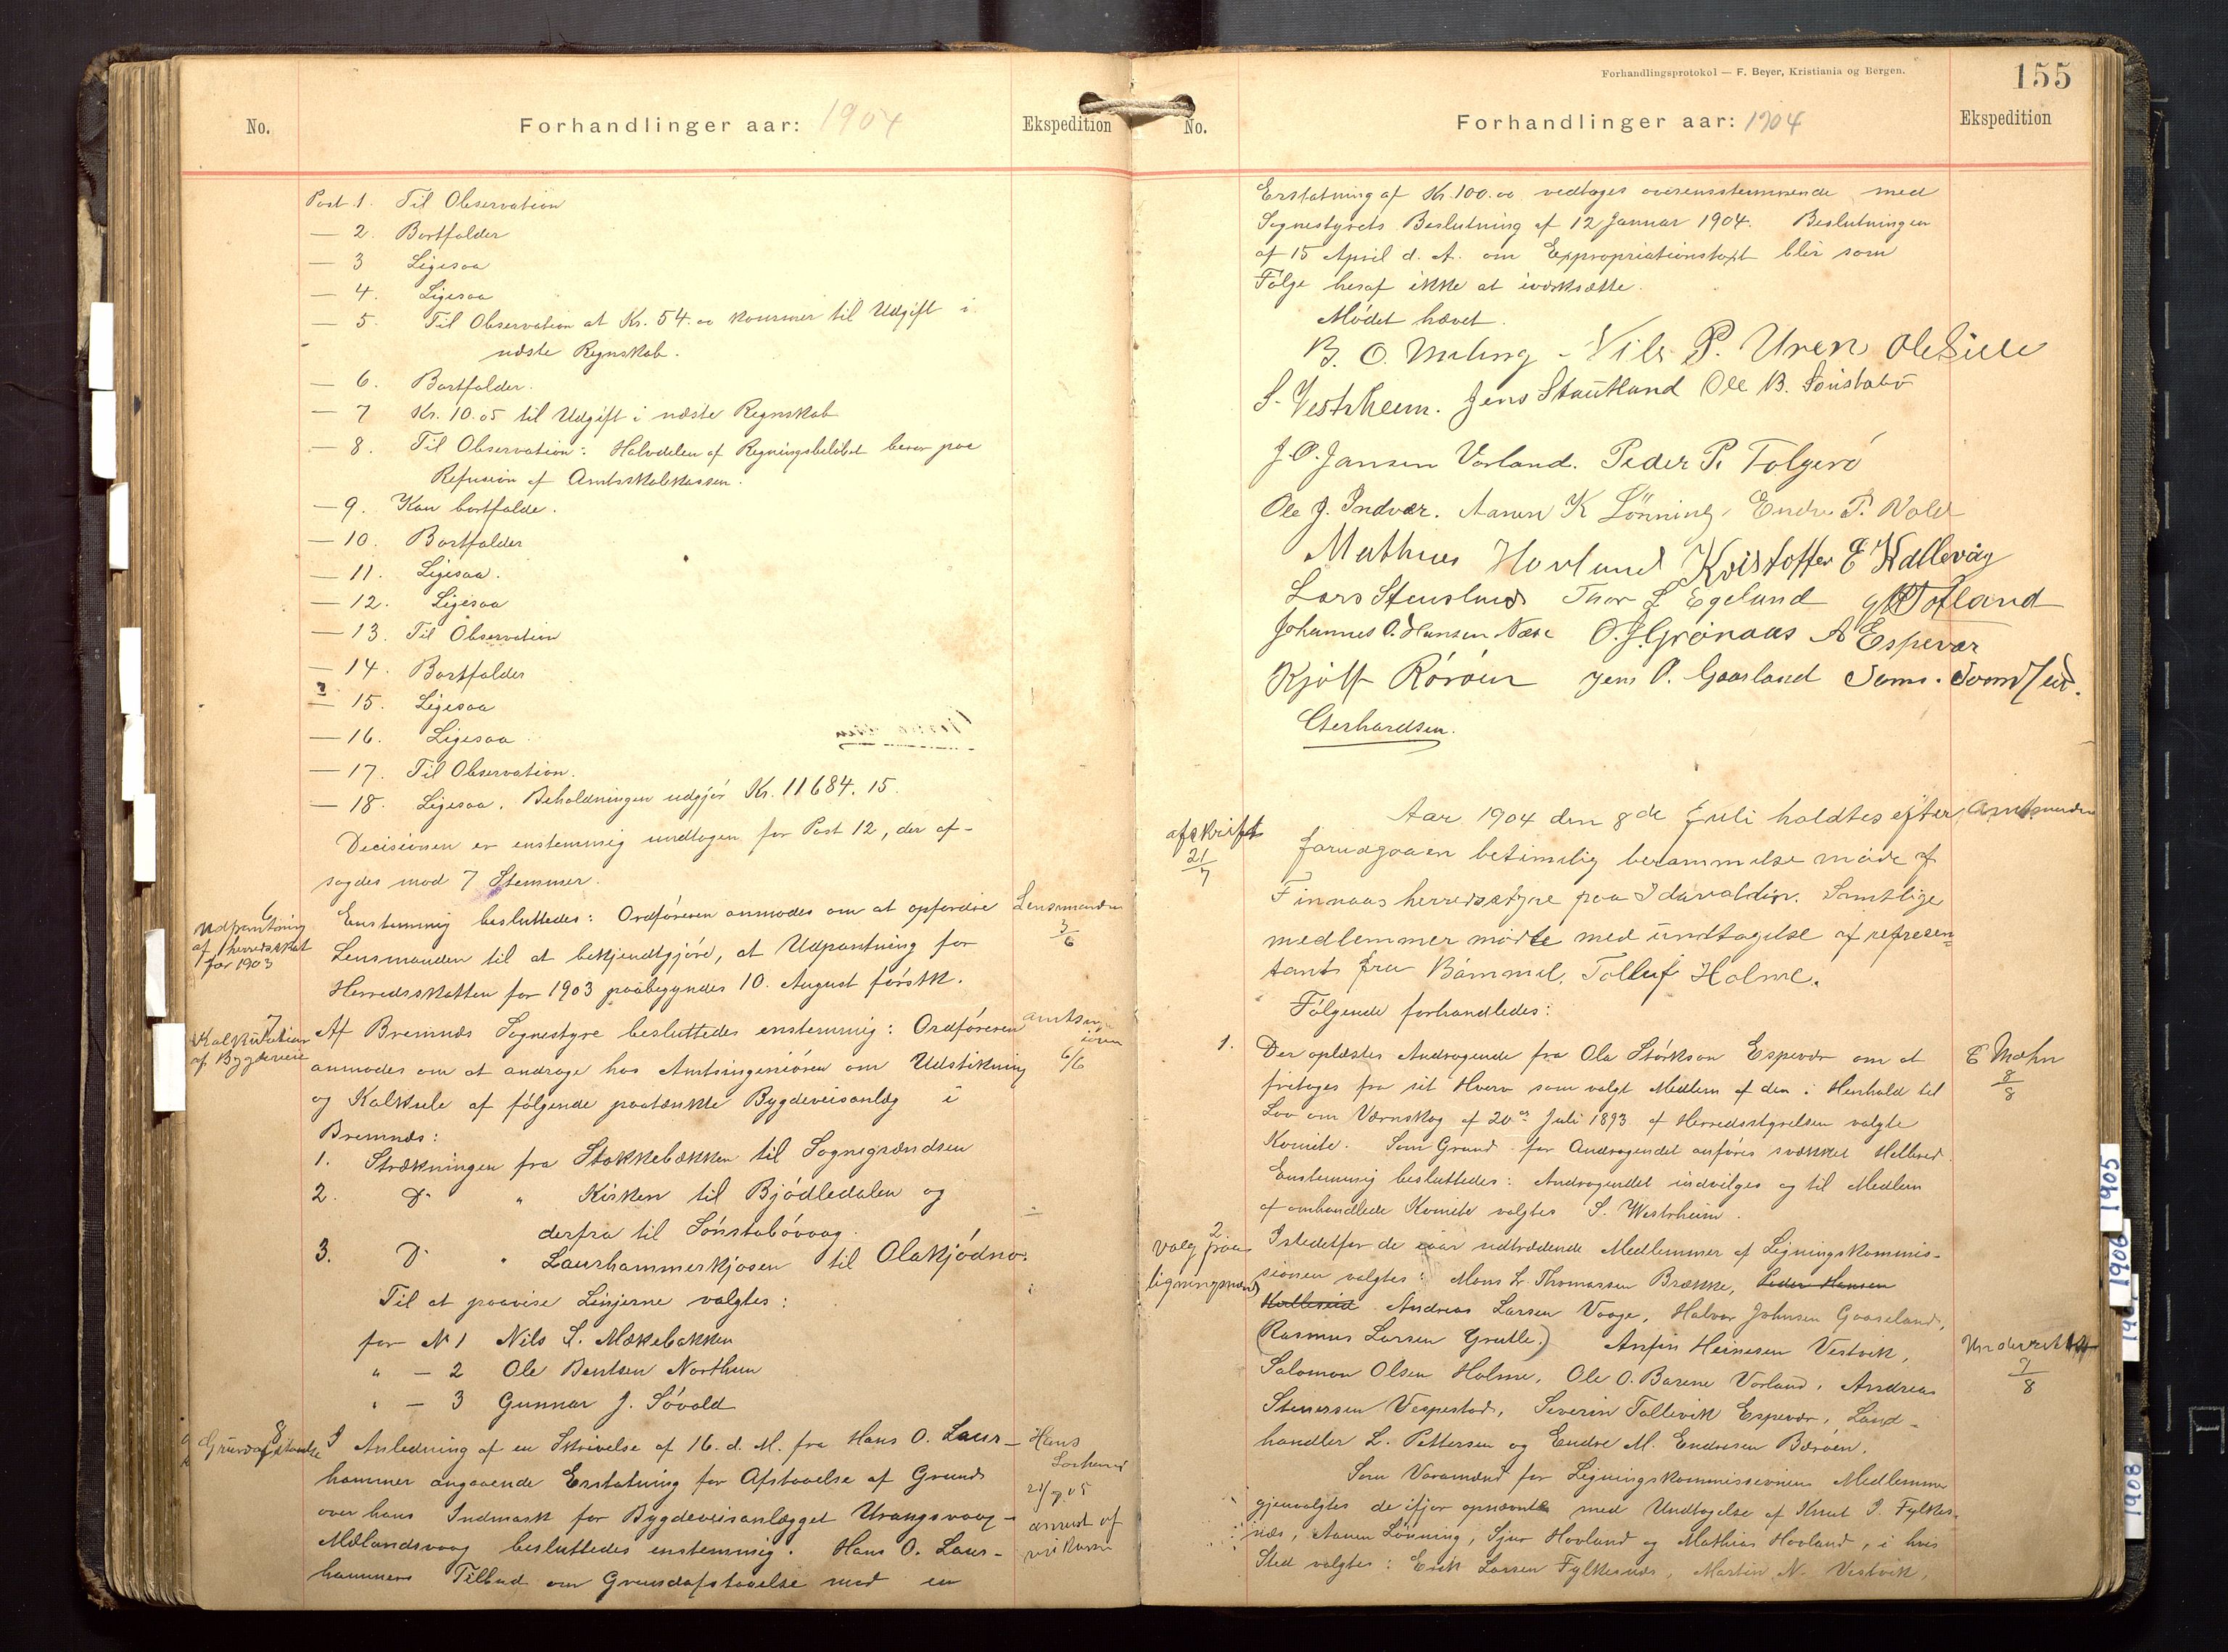 No.
Forhandlinger aar: 1904
Ekspedition
Post 1. Til Observation
— 2. Bortfalder
— 3 Ligesaa
— 4. Ligesaa
— 5. Til Observation at Kr. 54.00 kommer til Udgift i
næste Regnskab.
— 6. Bortfalder.
— 7 Kr. 10.05 til Udgift i næste Regnskab
— 8. Til Observation: Halvdelen af Regningsbeløbet beror paa
Refusion af Amtsskolekassen.
— 9. Kan bortfalde.
— 10. Bortfalder
— 11. Ligesaa.
— 12. Ligesaa
— 13. Til Observation
— 14. Bortfalder
— 15. Ligesaa
— 16. Ligesaa
— 17. Til Observation.
— 18. Ligesaa. Beholdningen udgjør Kr. 11684.15.
Decisionen er enstemmig undtagen for Post 12, der af-
sagdes mod 7 Stemmer.
6
Udpantning
af herredsskat
for 1903
Enstemmig besluttedes: Ordføreren anmodes om at opfordre
Lensmanden til at bekjendtgjøre, at Udpantning for
Herredsskatten for 1903 paabegyndes 10. August førstk.
Lensmanden
3/6
7
Kalkulation
af Bygdeveie
Af Bremnæs Sognestyre besluttedes enstemmig: Ordføreren
anmodes om at andrage hos Amtsingeniøren om Udstikning
og Kalkule af følgende paatænkte Bygdeveisanlæg i
Bremnæs:
6/6
1. Strækningen fra Stokkebækken til Sognegrændsen
2. Do " Kirken til Bjødledalen og
derfra til Sønstabøvaag.
3. Do " Laurhammerkjosen til Olakjødno.
Til at paavise Linjerne valgtes:
for No 1 Nils L. Mækebakken
" — 2 Ole Bentsen Northun
" — 3 Gunnar J. Søvold
8
Grundafstaaelse
I Anledning af en Skrivelse af 16. d. M. fra Hans O. Laur-
hammer angaaende Erstatning for Afstaaelse af Grund
over hans Indmark for Bygdeveisanlægget Urangsvaag-
Mælandsvaag besluttedes enstemmig: Hans O. Laur-
hammers Tilbud om Grundafstaaelse mod en
Hans
Forhandlingsprotokol — F. Beyer, Kristiania og Bergen.
155
No.
Forhandlinger aar: 1904
Ekspedition
Erstatning af Kr. 100.00 vedtages overensstemmende med
Sognestyrets Beslutning af 12 Januar 1904. Beslutningen
af 15 April d. A. om Expropriationstaxt blir som
Følge heraf ikke at iværksætte.
Mødet hævet.
B. O. Meling Nils P. Uren Ole Siem
S. Vestrheim. Jens Stautland Ole B. Sønstabø
J. O. Jansen Vorland. Peder P. Folgerø
Ole J. Indvær. Aanen K Lønning. Endre P. Vold
Mathias Hovland Kristoffer E Kallevåg
Lars Stensland Thor L Egeland Tofland
Johannes O. Hansen Næse O. J. Grønaas A Espevær
Kjølf Rørøen Jens O. Gaasland
Gerhardsen.
afskrift
21/7
Aar 1904 den 8de Juli holdtes efter
forudgaaen betimelig berammelse møde af
Finnaas herredsstyre paa Idavaldin. Samtlige
medlemmer mødte med undtagelse af represen=
tant fra Bømmel, Tollef Holme.
Følgende forhandledes:
Amtmanden
1. Der oplæstes Andragende fra Ole Størkson Espevær om at
fritages fra sit Hverv som valgt Medlem af den i Henhold til
Lov om Værnskog af 20de Juli 1893 af Herredsstyrelsen valgte
Komite. Som Grund for Andragendet anføres svækket Helbred.
Enstemmig besluttedes: Andragendet indvilges og til Medlem
af omhandlede Komite valgtes S. Westrheim.
E Mæhn
8/8
2
Valg paa
ligningsmænd
Istedetfor de iaar udtrædende Medlemmer af Ligningskommis-
sionen valgtes: Mons L. Thomassen Brække, Peder Hansen
Kallevåg Andreas Larsen Vaage, Halvor Johnsen Gaaseland,
(Rasmus Larsen Grutle,) Anfin Heinesen Vestvik,
Salomon Olsen Holme, Ole O. Barene Vorland, Andreas
Steinersen Vespestad, Severin Tollevik Espevær, Land-
handler L. Pettersen og Endre M. Endresen Bærøen.
Underrettet
9/8
Som Varamænd for Ligningskommissionens Medlemmer
gjenvalgtes de ifjor opnævnte med Undtagelse af Knut I. Fylkes-
næs, Aanen Lønning, Sjur Hovland og Mathias Hovland, i hvis
Sted valgtes: Erik Larsen Fylkesnæs, Martin N. Vestvik,
1905
1906
1908